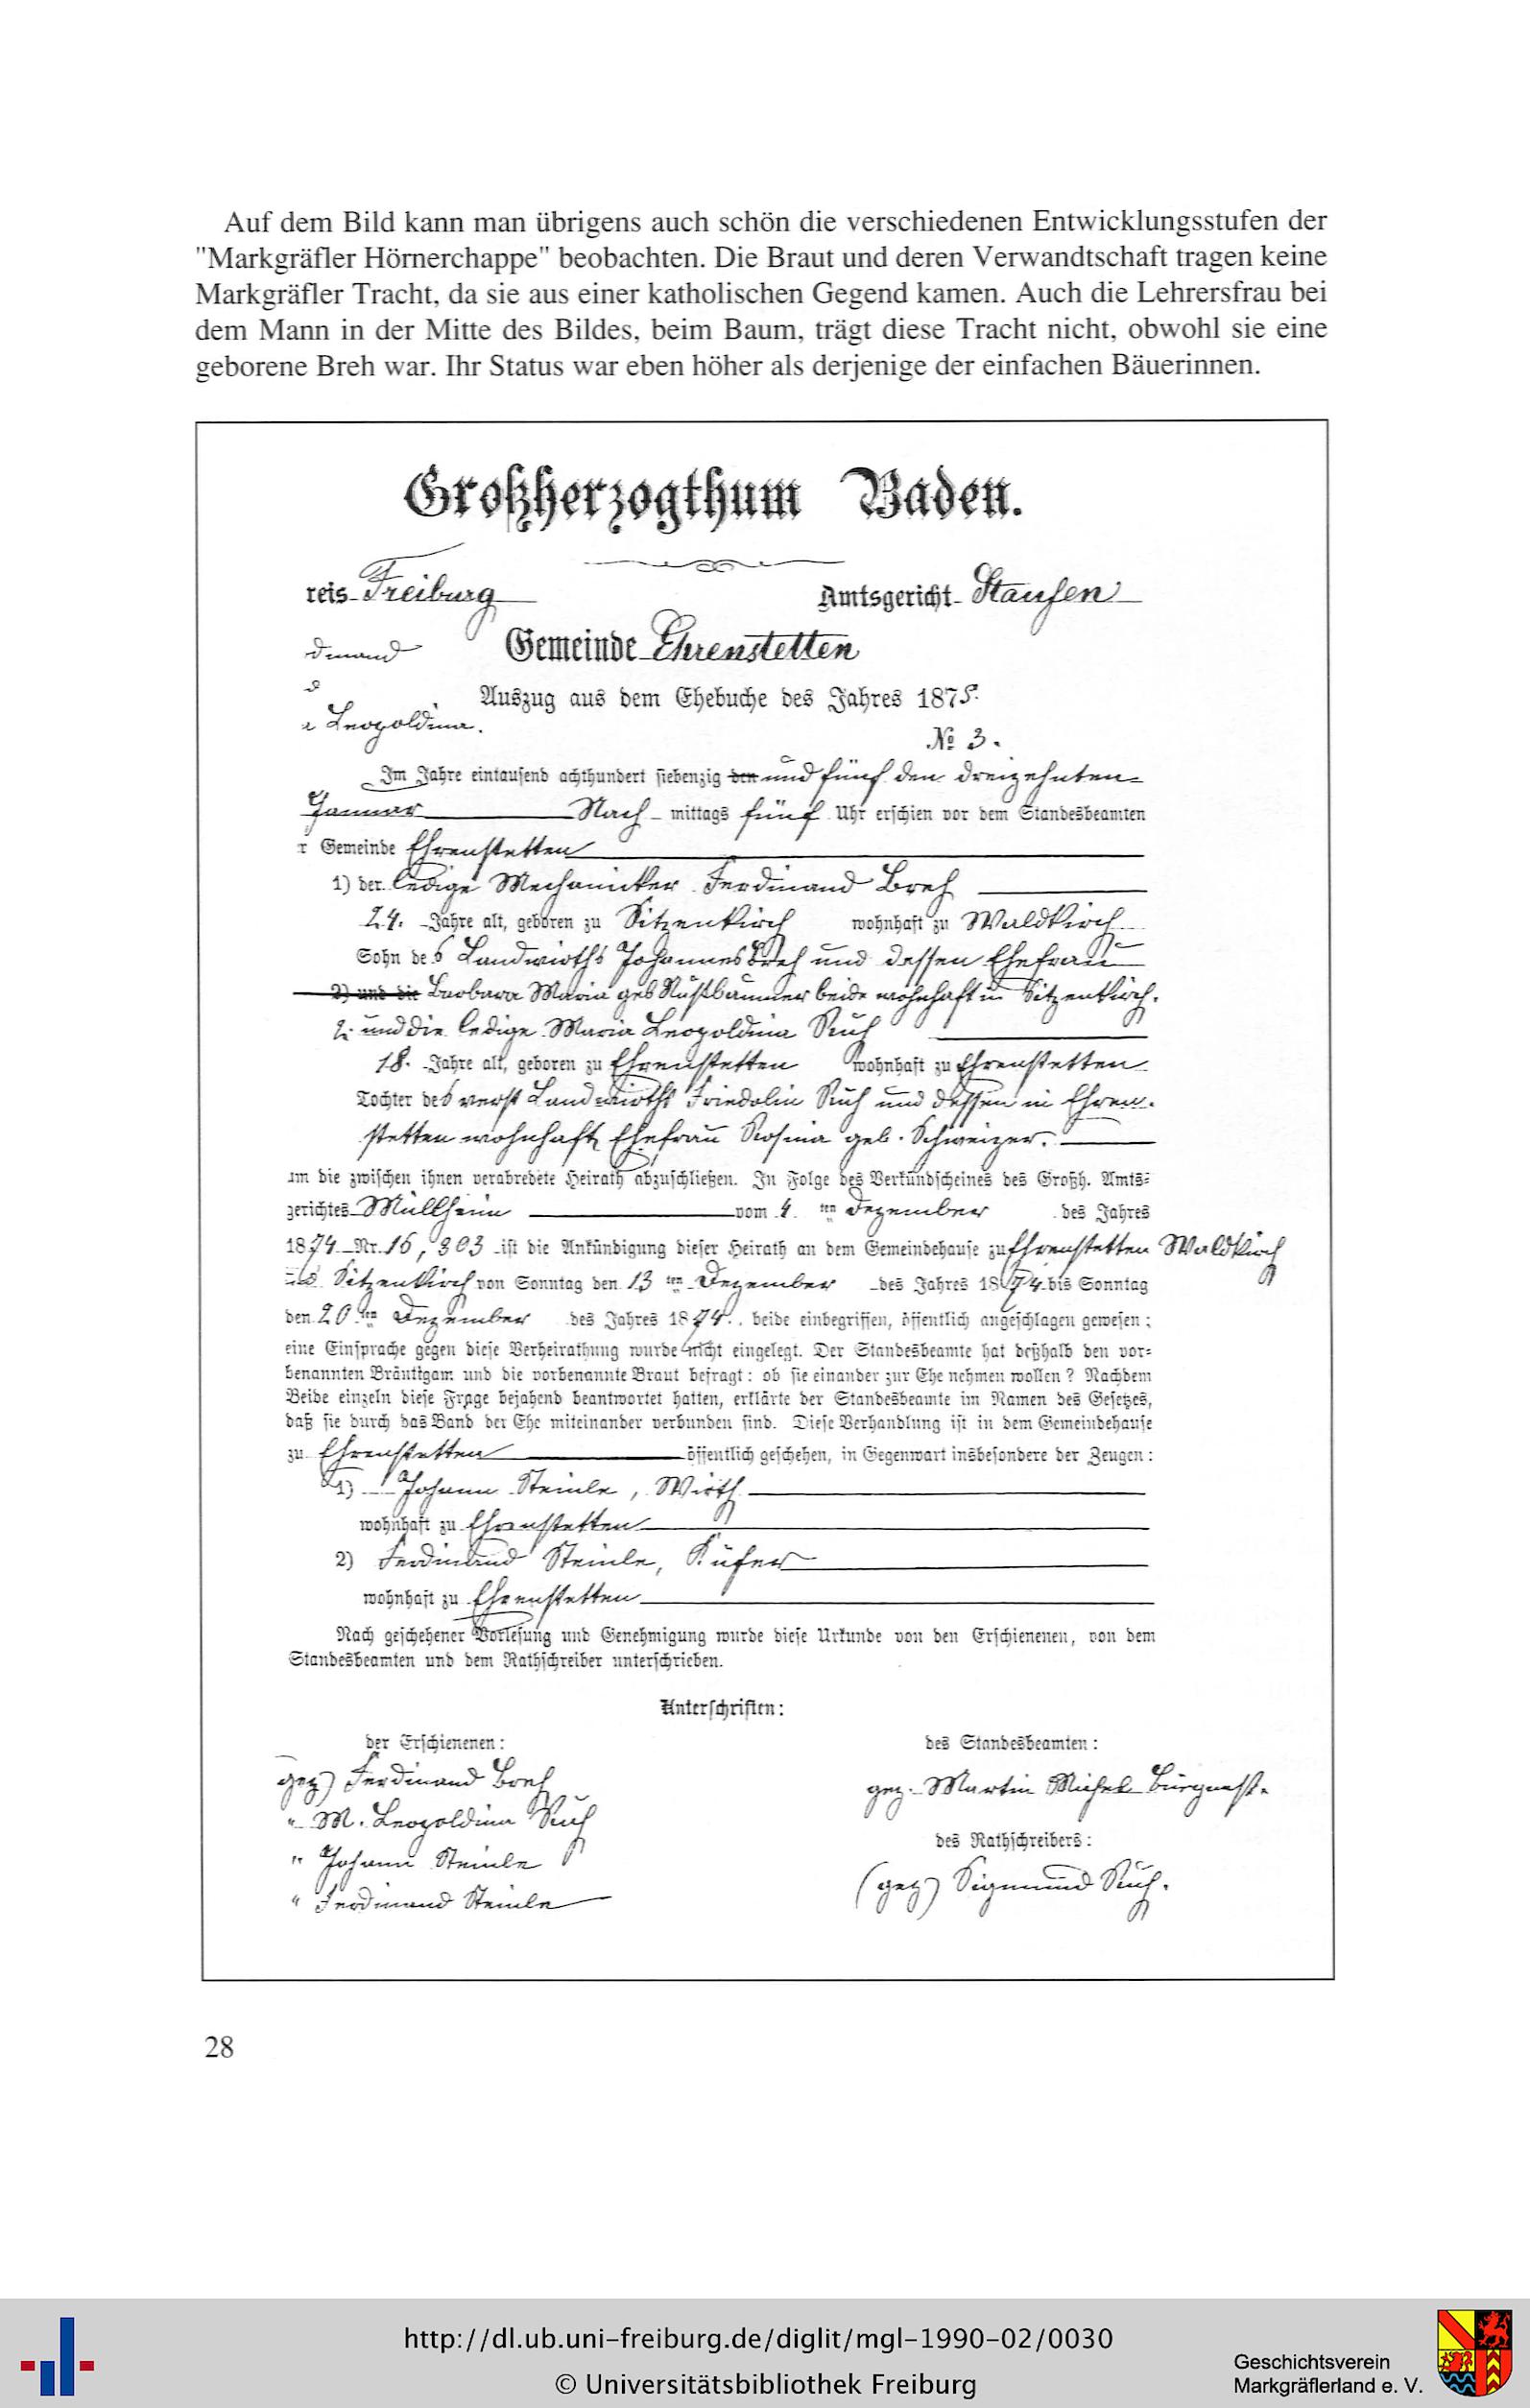 Auf dem Bild kann man übrigens auch schön die verschiedenen Entwicklungsstufen der
"Markgräfler Hörnerchappe" beobachten. Die Braut und deren Verwandtschaft tragen keine
Markgräfler Tracht, da sie aus einer katholischen Gegend kamen. Auch die Lehrersfrau bei
dem Mann in der Mitte des Bildes, beim Baum, trägt diese Tracht nicht, obwohl sie eine
geborene Breh war. Ihr Status war eben höher als derjenige der einfachen Bäuerinnen.
Großherzogthum Baden.
reis Freiburg Amtsgericht Staufen
dinand Gemeinde Ehrenstetten
Auszug aus dem Ehebuche des Jahres 1875.
Leopoldina.
№ 3.
Im Jahre eintausend achthundert siebenzig den und fünf den dreizehnten
Januar Nach mittags fünf Uhr erschien vor dem Standesbeamten
r Gemeinde Ehrenstetten
1) der ledige Mechaniker Ferdinand Breh
24. Jahre alt, geboren zu Sitzenkirch wohnhaft zu Waldkirch
Sohn des Landwirths Johannes Breh und dessen Ehefrau
2) und die Barbara Maria geb Nußbaumer beide wohnhaft in Sitzenkirch.
2. und die ledige Maria Leopoldina Ruch
18. Jahre alt, geboren zu Ehrenstetten wohnhaft zu Ehrenstetten
Tochter des verst Landwirths Friedolin Ruch und dessen in Ehren-
stetten wohnhaft Ehefrau Rosina geb. Schweizer.
um die zwischen ihnen verabredete Heirath abzuschließen. In Folge des Verkündscheines des Großh. Amts-
gerichtes Müllheim vom 4. ten Dezember des Jahres
1874 Nr. 16,303 ist die Ankündigung dieser Heirath an dem Gemeindehause zu Ehrenstetten Waldkirch
und Sitzenkirch von Sonntag den 13 ten Dezember des Jahres 1874 bis Sonntag
den 20 ten Dezember des Jahres 1874. beide einbegriffen, öffentlich angeschlagen gewesen;
eine Einsprache gegen diese Verheirathung wurde nicht eingelegt. Der Standesbeamte hat deßhalb den vor-
benannten Bräutigam und die vorbenannte Braut befragt: ob sie einander zur Ehe nehmen wollen? Nachdem
Beide einzeln diese Frage bejahend beantwortet hatten, erklärte der Standesbeamte im Namen des Gesetzes,
daß sie durch das Band der Ehe miteinander verbunden sind. Diese Verhandlung ist in dem Gemeindehause
zu Ehrenstetten öffentlich geschehen, in Gegenwart insbesondere der Zeugen:
1) Johann Steinle, Wirth
wohnhaft zu Ehrenstetten
2) Ferdinand Steinle, Küfer
wohnhaft zu Ehrenstetten
Nach geschehener Vorlesung und Genehmigung wurde diese Urkunde von den Erschienenen, von dem
Standesbeamten und dem Rathschreiber unterschrieben.
Unterschriften:
der Erschienenen: des Standesbeamten:
gez) Ferdinand Breh gez. Martin Michel Bürgmst.
" M. Leopoldina Ruch
des Rathschreibers:
" Johann Steinle
(gez) Sigmund Ruch.
" Ferdinand Steinle
28
http://dl.ub.uni-freiburg.de/diglit/mgl-1990-02/0030
© Universitätsbibliothek Freiburg
Geschichtsverein
Markgräflerland e. V.